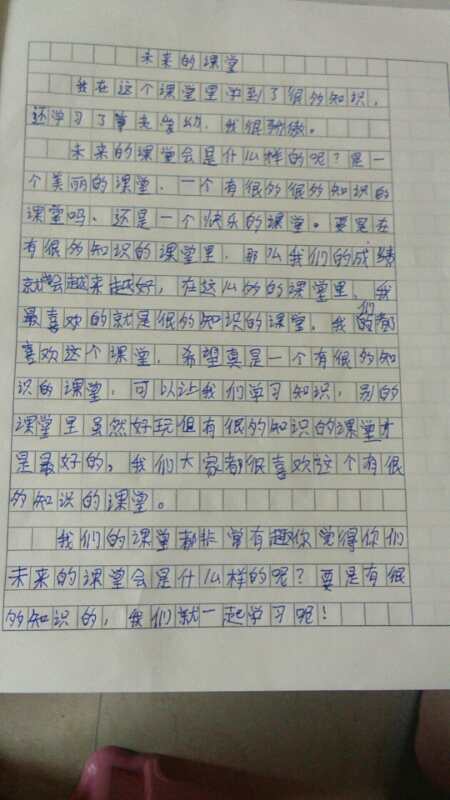 未来的课堂
我在这个课堂里学到了很多知识,
还学习了尊老爱幼,我很骄傲。
未来的课堂会是什么样的呢?是一
个美丽的课堂,一个有很多很多知识的
课堂吗,还是一个快乐的课堂。要是在
有很多知识的课堂里,那么我们的成绩
就会越来越好,在这么多的课堂里,我
最喜欢的就是很多知识的课堂,我们都
喜欢这个课堂,希望真是一个有很多知
识的课堂,可以让我们学习知识,别的
课堂里虽然好玩但有很多知识的课堂才
是最好的,我们大家都很喜欢这个有很
多知识的课堂。
我们的课堂都非常有趣你觉得你们
未来的课堂会是什么样的呢?要是有很
多知识的,我们就一起学习呢!